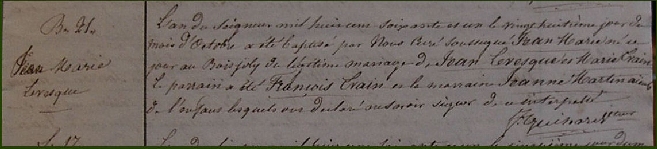 B. 21.
Jean Marie
Levesque
L'an du Seigneur mil huit cent soixante et un le vingt huitième jour du
mois d'Octobre a été baptisé par Nous Curé soussigné Jean Marie né ce
jour au Boisjoly du légitime mariage de Jean Levesque et Marie Crain
Le parrain a été François Crain et la marraine Jeanne Martin aieule
de l'enfant lesquels ont déclaré ne savoir signer de ce interpellés